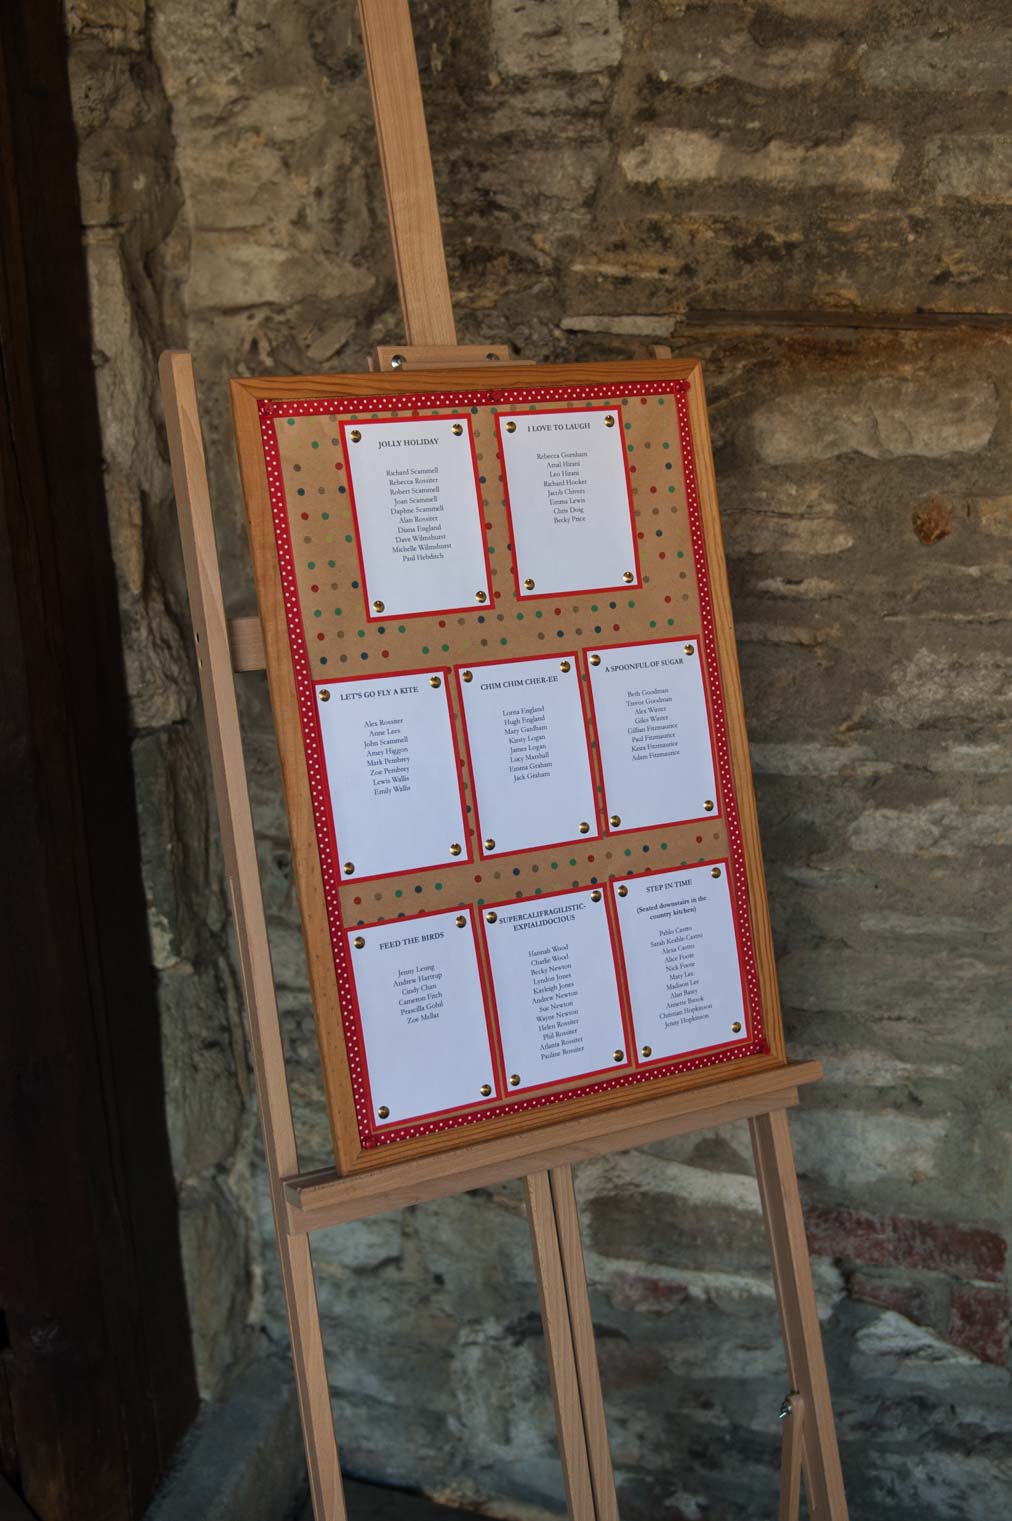 JOLLY HOLIDAY
Richard Scammell
Rebecca Rossiter
Robert Scammell
Joan Scammell
Daphne Scammell
Alan Rossiter
Diana England
Dave Wilmshurst
Michelle Wilmshurst
Paul Hebditch
I LOVE TO LAUGH
Rebecca Gurnham
Amal Hirani
Leo Hirani
Richard Hooker
Jacob Chivers
Emma Lewis
Chris Doig
Becky Price
LET'S GO FLY A KITE
Alex Rossiter
Anne Lees
John Scammell
Amey Haggon
Mark Pembrey
Zoe Pembrey
Lewis Wallis
Emily Wallis
CHIM CHIM CHER-EE
Lorna England
Hugh England
Mary Gurdham
Kirsty Logan
James Logan
Lucy Marshall
Emma Graham
Jack Graham
A SPOONFUL OF SUGAR
Beth Goodman
Trevor Goodman
Alex Winter
Giles Winter
Gillian Fitzmaurice
Paul Fitzmaurice
Keira Fitzmaurice
Adam Fitzmaurice
FEED THE BIRDS
Jenny Leung
Andrew Hartrup
Cindy Chan
Cameron Fitch
Prascilla Gohil
Zoe Mellar
SUPERCALIFRAGILISTIC-
EXPIALIDOCIOUS
Hannah Wood
Charlie Wood
Becky Newton
Lyndon Jones
Kayleigh Jones
Andrew Newton
Sue Newton
Wayne Newton
Helen Rossiter
Phil Rossiter
Atlanta Rossiter
Pauline Rossiter
STEP IN TIME
(Seated downstairs in the
country kitchen)
Pablo Castro
Sarah Keable Castro
Alexa Castro
Alice Foote
Nick Foote
Mary Lee
Madison Lee
Alan Batey
Annette Brook
Christian Hopkinson
Jenny Hopkinson